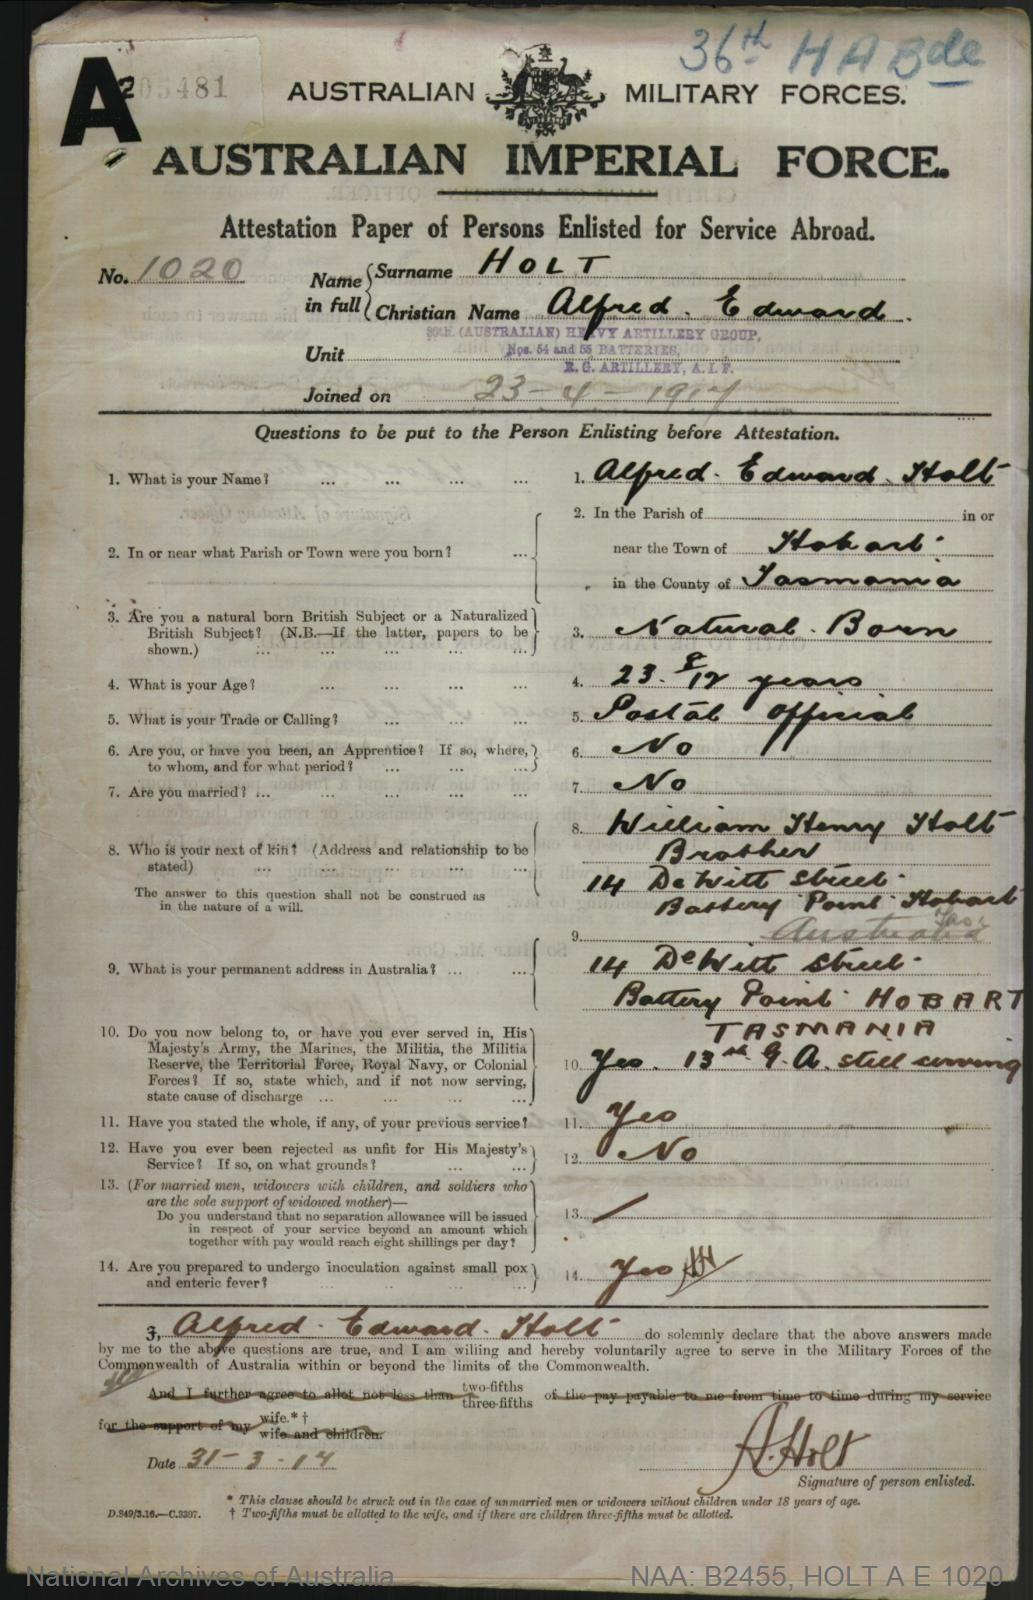 36th H A Bde
A
205481
AUSTRALIAN MILITARY FORCES.
AUSTRALIAN IMPERIAL FORCE.
Attestation Paper of Persons Enlisted for Service Abroad.
No. 1020
Name in full { Surname HOLT
Christian Name Alfred. Edward.
36th. (AUSTRALIAN) HEAVY ARTILLERY GROUP,
Unit Nos. 54 and 55 BATTERIES,
R. G. ARTILLERY, A. I. F.
Joined on 23-4-1917
Questions to be put to the Person Enlisting before Attestation.
1. What is your Name? ... ... ... ... 1. Alfred. Edward. Holt
2. In or near what Parish or Town were you born? ... 2. In the Parish of in or
near the Town of Hobart.
in the County of Tasmania
3. Are you a natural born British Subject or a Naturalized
British Subject? (N.B.—If the latter, papers to be
shown.) ... ... ... ... ...
3. Natural. Born
4. What is your Age? ... ... ... ... 4. 23. 8/12 years
5. What is your Trade or Calling? ... ... ... 5. Postal Official
6. Are you, or have you been, an Apprentice? If so, where,
to whom, and for what period? ... ... ...
6. No
7. Are you married? ... ... ... ... ... 7. No
8. Who is your next of kin? (Address and relationship to be
stated) ... ... ... ... ...
The answer to this question shall not be construed as
in the nature of a will.
8. William Henry Holt
Brother
14 De Witt Street.
Battery Point Hobart
Tas:
Australia
9. What is your permanent address in Australia? ... ... 9.
14 De Witt Street.
Battery Point. HOBART
TASMANIA
10. Do you now belong to, or have you ever served in, His
Majesty's Army, the Marines, the Militia, the Militia
Reserve, the Territorial Force, Royal Navy, or Colonial
Forces? If so, state which, and if not now serving,
state cause of discharge ... ... ... ...
10. Yes. 13th G. A. still serving
11. Have you stated the whole, if any, of your previous service? 11. Yes
12. Have you ever been rejected as unfit for His Majesty's
Service? If so, on what grounds? ... ...
12. No
13. (For married men, widowers with children, and soldiers who
are the sole support of widowed mother)—
Do you understand that no separation allowance will be issued
in respect of your service beyond an amount which
together with pay would reach eight shillings per day?
13. /
14. Are you prepared to undergo inoculation against small pox
and enteric fever? ... ... ...
14. Yes
I, Alfred. Edward. Holt do solemnly declare that the above answers made
by me to the above questions are true, and I am willing and hereby voluntarily agree to serve in the Military Forces of the
Commonwealth of Australia within or beyond the limits of the Commonwealth.
And I further agree to allot not less than two-fifths three-fifths of the pay payable to me from time to time during my service
for the support of my wife.* † wife and children.
Date 31-3-17
A. Holt
Signature of person enlisted.
* This clause should be struck out in the case of unmarried men or widowers without children under 18 years of age.
D.349/3.16.—C.3397. † Two-fifths must be allotted to the wife, and if there are children three-fifths must be allotted.
National Archives of Australia NAA: B2455, HOLT A E 1020